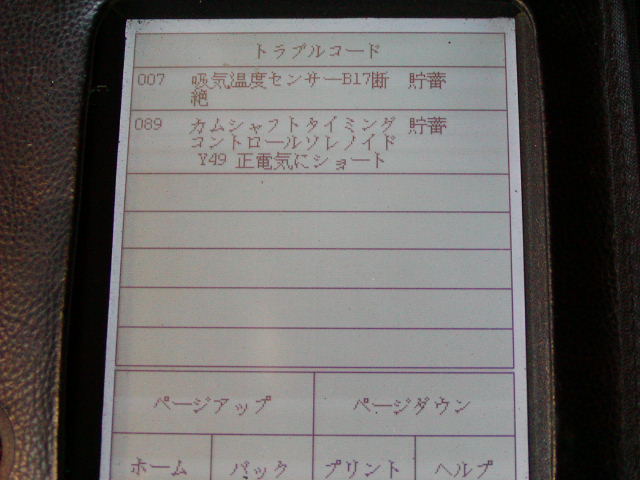 トラブルコード
007 吸気温度センサーB17断 貯蓄
絶
089 カムシャフトタイミング 貯蓄
コントロールソレノイド
Y49 正電気にショート
ページアップ ページダウン
ホーム バック プリント ヘルプ